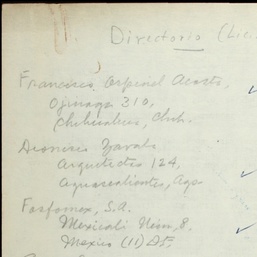 Directorio (Lic.
Francisco Espinel Acosta,
Ojinaga 310,
Chihuahua, Chih.
Dionisio Zavala
Arquitectos 124,
Aguascalientes, Ags.
Fosfomex, S.A.
Mexicali Núm. 8.
Mexico (11) D.F.